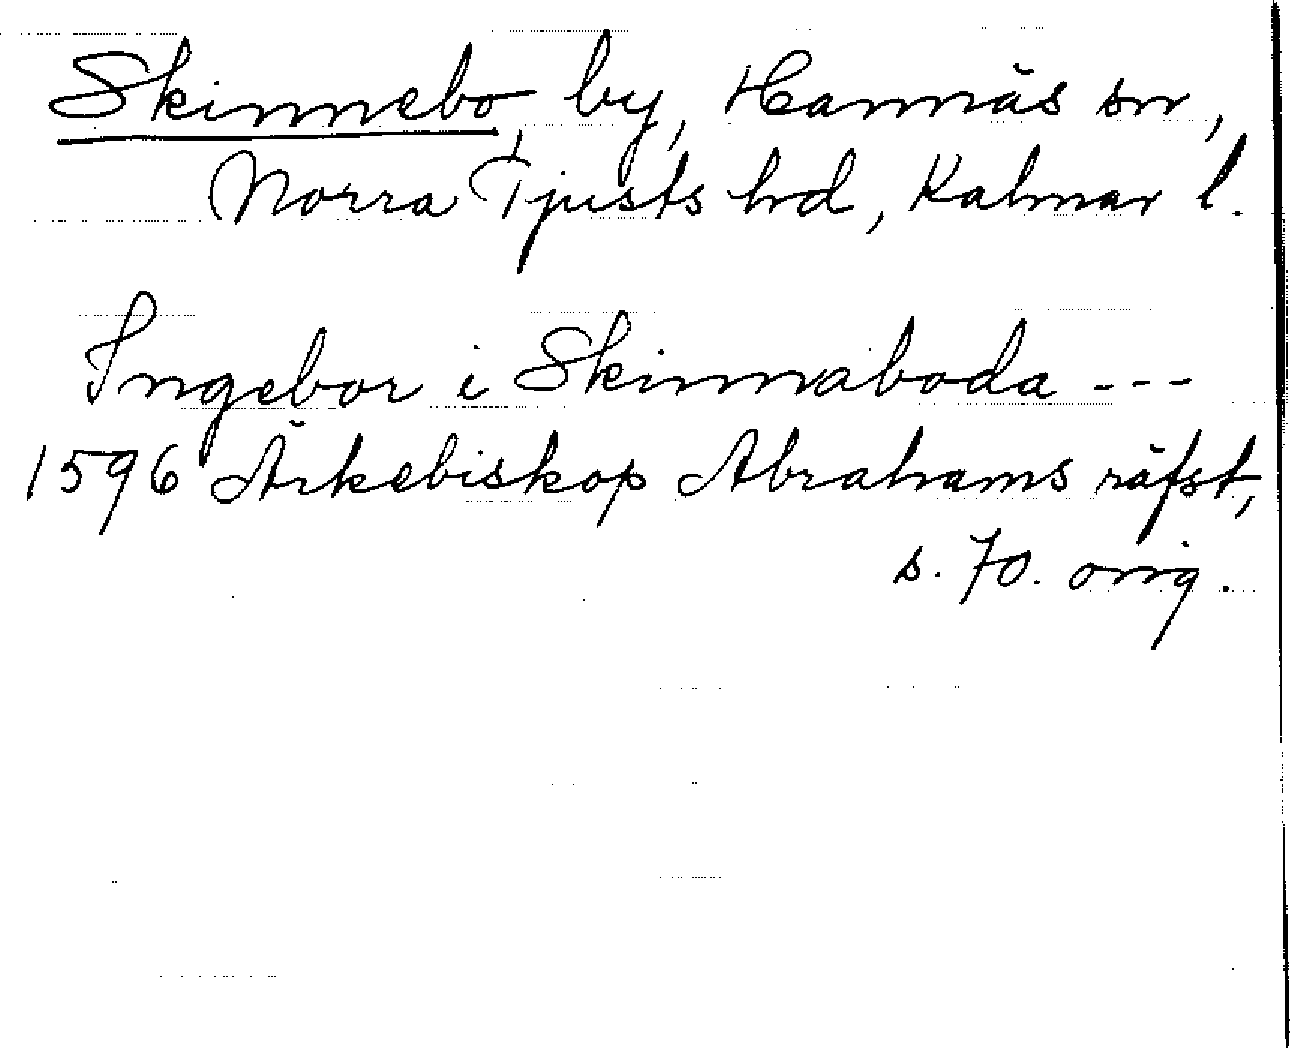 Skinnebo, by, Hannäs sn,
Norra Tjusts hd, Kalmar l.
Ingebor i Skinnaboda ---
1596 Ärkebiskop Abrahams räfst,
s. 70. orig.